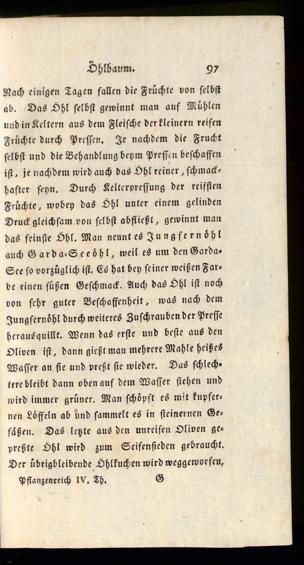 Öhlbaum. 97
Nach einigen Tagen fallen die Früchte von selbst
ab. Das Öhl selbst gewinnt man auf Mühlen
und in Keltern aus dem Fleische der kleinern reifen
Früchte durch Pressen. Je nachdem die Frucht
selbst und die Behandlung beym Pressen beschaffen
ist, je nachdem wird auch das Öhl reiner, schmack-
hafter seyn. Durch Kelterpressung der reifsten
Früchte, wobey das Öhl unter einem gelinden
Druck gleichsam von selbst abfließt, gewinnt man
das feinste Öhl. Man nennt es Jungfernöhl
auch Garda-Seeöhl, weil es um den Garda-
See so vorzüglich ist. Es hat bey seiner weißen Far-
be einen süßen Geschmack. Auch das Öhl ist noch
von sehr guter Beschaffenheit, was nach dem
Jungfernöhl durch weiteres Zuschrauben der Presse
herausquillt. Wenn das erste und beste aus den
Oliven ist, dann gießt man mehrere Mahle heißes
Wasser an sie und preßt sie wieder. Das schlech-
tere bleibt dann oben auf dem Wasser stehen und
wird immer grüner. Man schöpft es mit kupfer-
nen Löffeln ab und sammelt es in steinernen Ge-
fäßen. Das letzte aus den unreifen Oliven ge-
preßte Öhl wird zum Seifensieden gebraucht.
Der übrigbleibende Öhlkuchen wird weggeworfen,
Pflanzenreich IV. Th. G